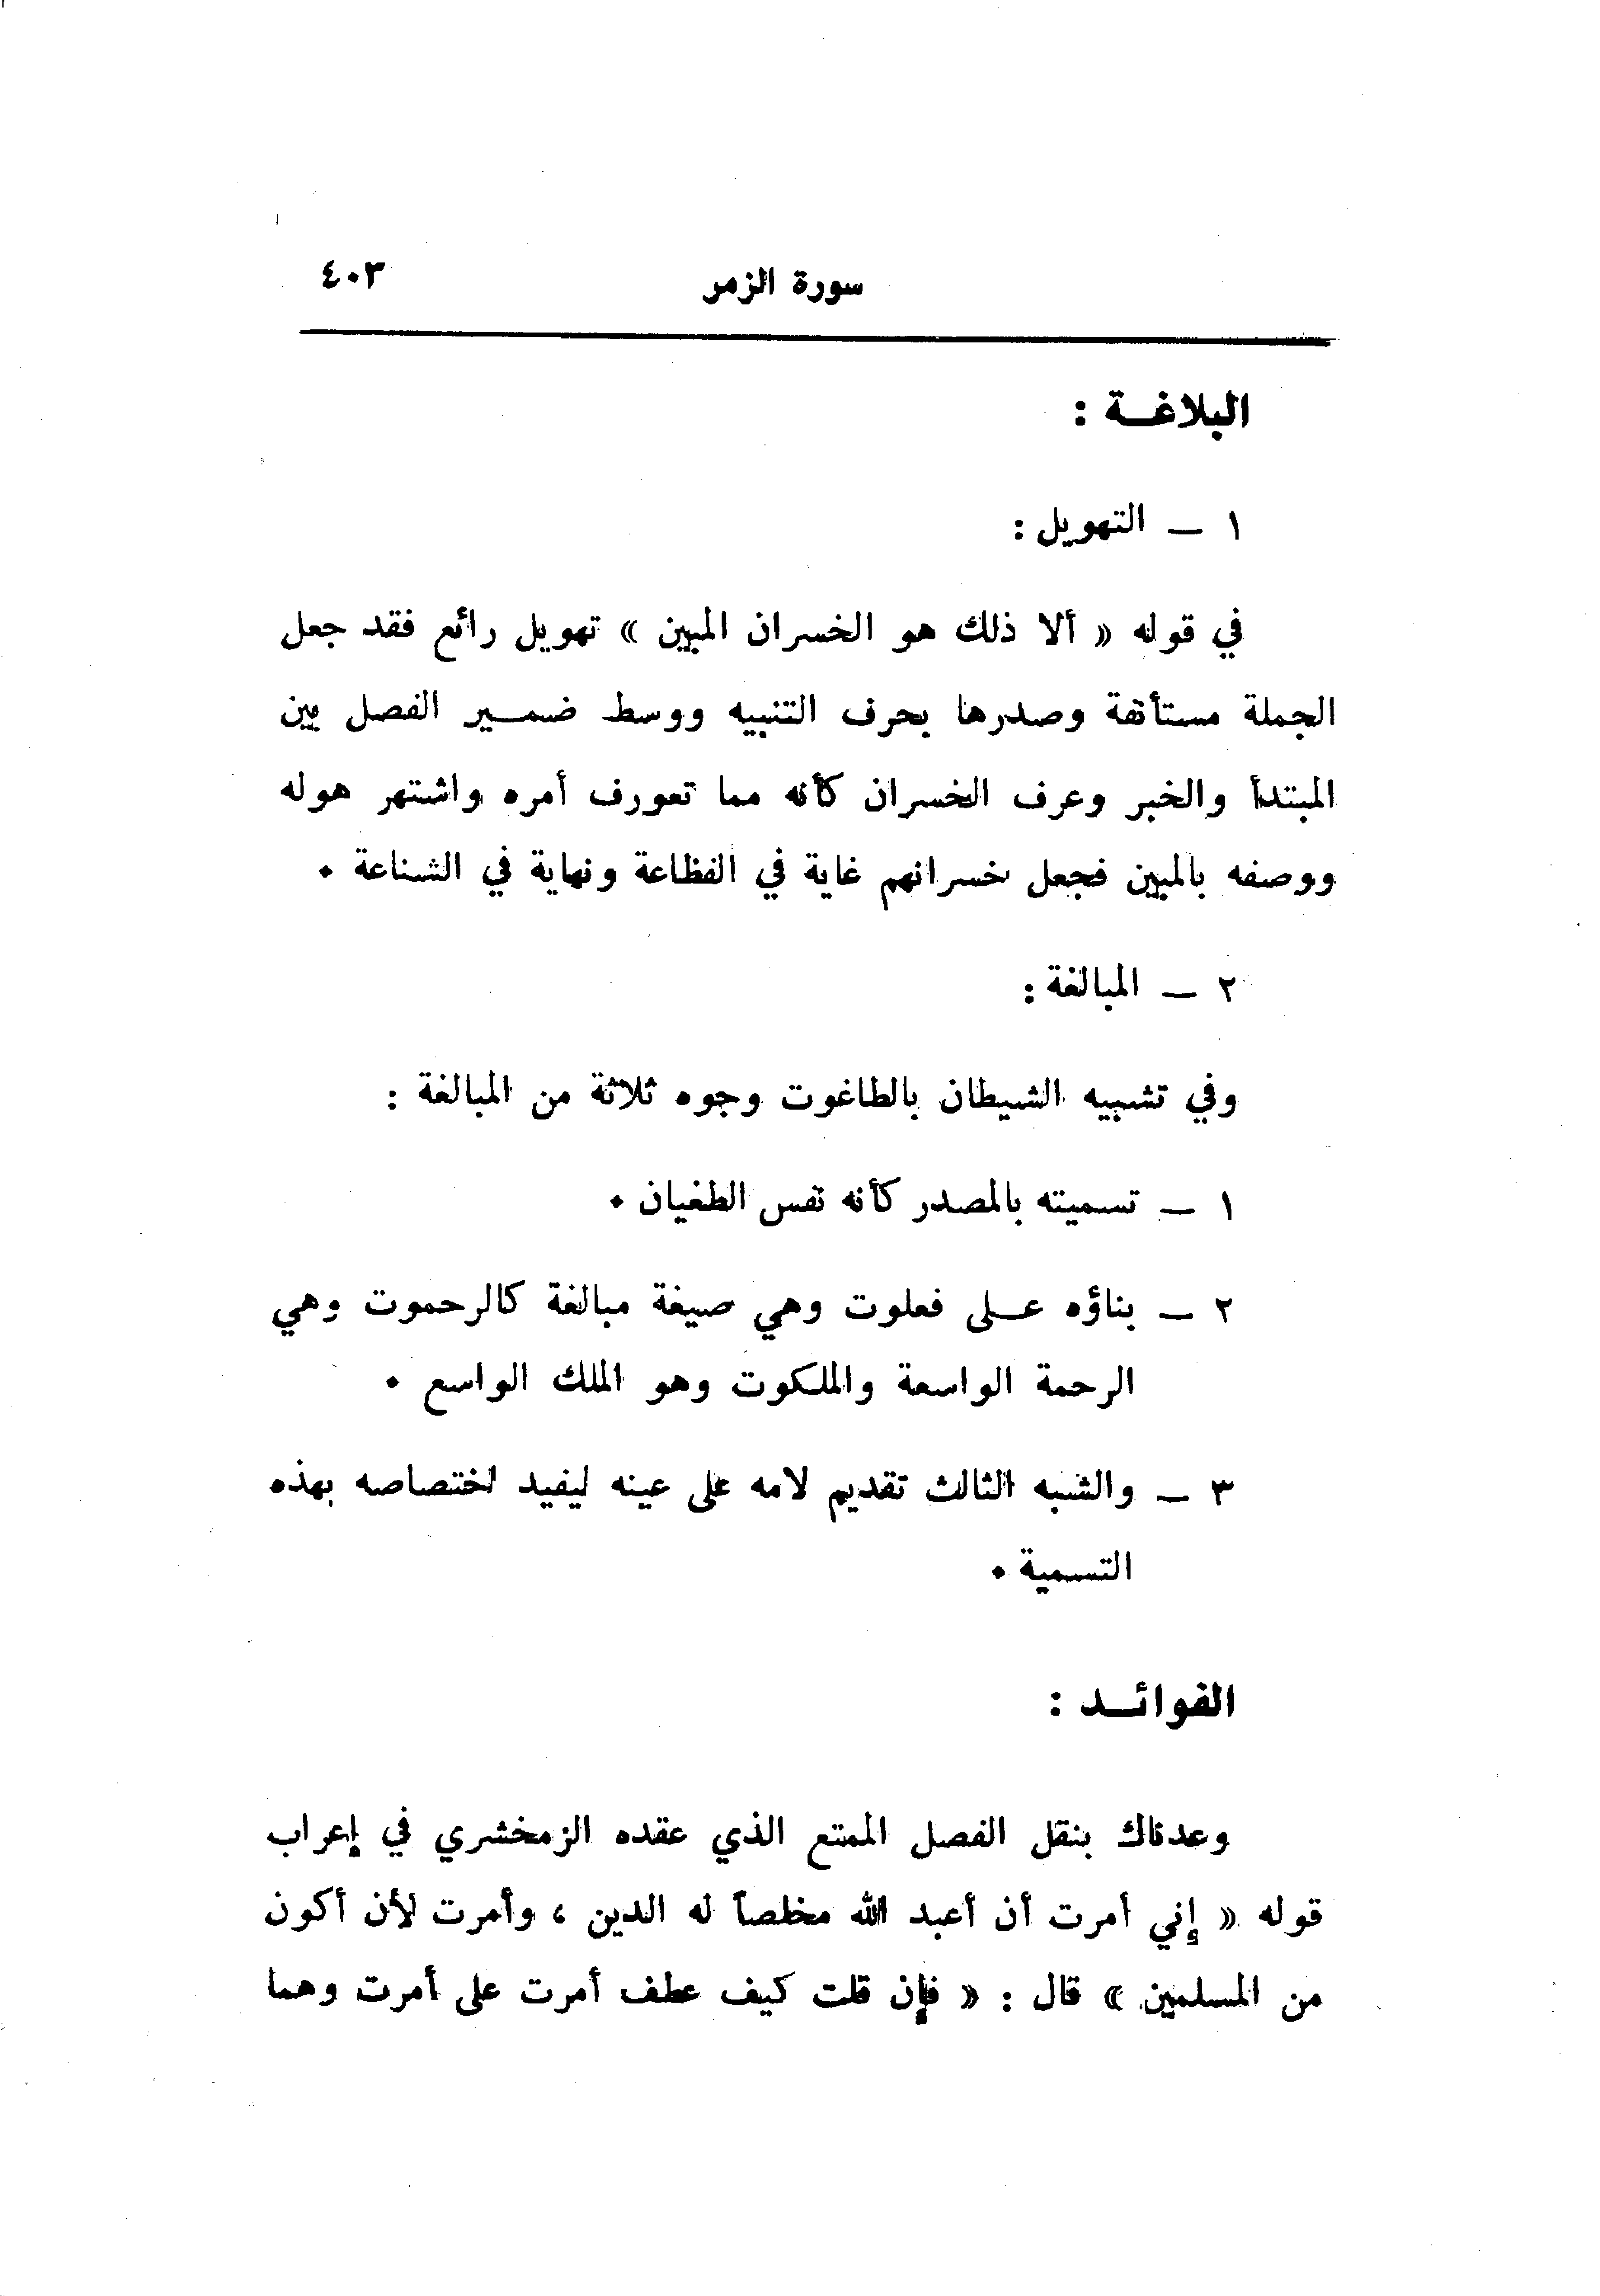 سورة الزمر ٤٠٣
البلاغـة :
١ – التهويل :
في قوله « ألا ذلك هو الخسران المبين » تهويل رائع فقد جعل
الجملة مستأنفة وصدرها بحرف التنبيه ووسط ضمـير الفصل بين
المبتدأ والخبر وعرف الخسران كأنه مما تعورف أمره واشتهر هوله
ووصفه بالمبين فجعل خسرانهم غاية في الفظاعة ونهاية في الشناعة .
٢ – المبالغة :
وفي تشبيه الشيطان بالطاغوت وجوه ثلاثة من المبالغة :
١ – تسميته بالمصدر كأنه نفس الطغيان .
٢ – بناؤه عـلى فعلوت وهي صيغة مبالغة كالرحموت وهي
الرحمة الواسعة والملكوت وهو الملك الواسع .
٣ – والشبه الثالث تقديم لامه على عينه ليفيد اختصاصه بهذه
التسمية .
الفوائـد :
وعدناك بنقل الفصل الممتع الذي عقده الزمخشري في إعراب
قوله « إني أمرت أن أعبد الله مخلصاً له الدين ، وأمرت لأن أكون
من المسلمين » قال : « فإن قلت كيف عطف أمرت على أمرت وهما